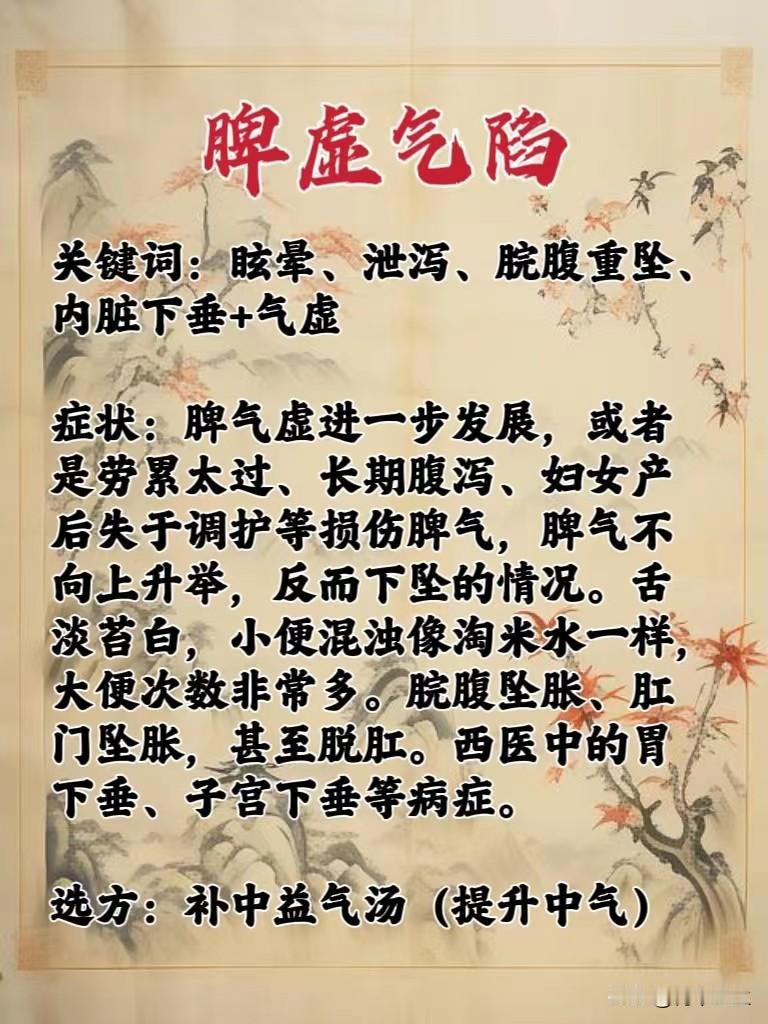 脾虚气陷
关键词：眩晕、泄泻、脘腹重坠、
内脏下垂+气虚
症状：脾气虚进一步发展，或者
是劳累太过、长期腹泻、妇女产
后失于调护等损伤脾气，脾气不
向上升举，反而下坠的情况。舌
淡苔白，小便混浊像淘米水一样，
大便次数非常多。脘腹坠胀、肛
门坠胀，甚至脱肛。西医中的胃
下垂、子宫下垂等病症。
选方：补中益气汤（提升中气）